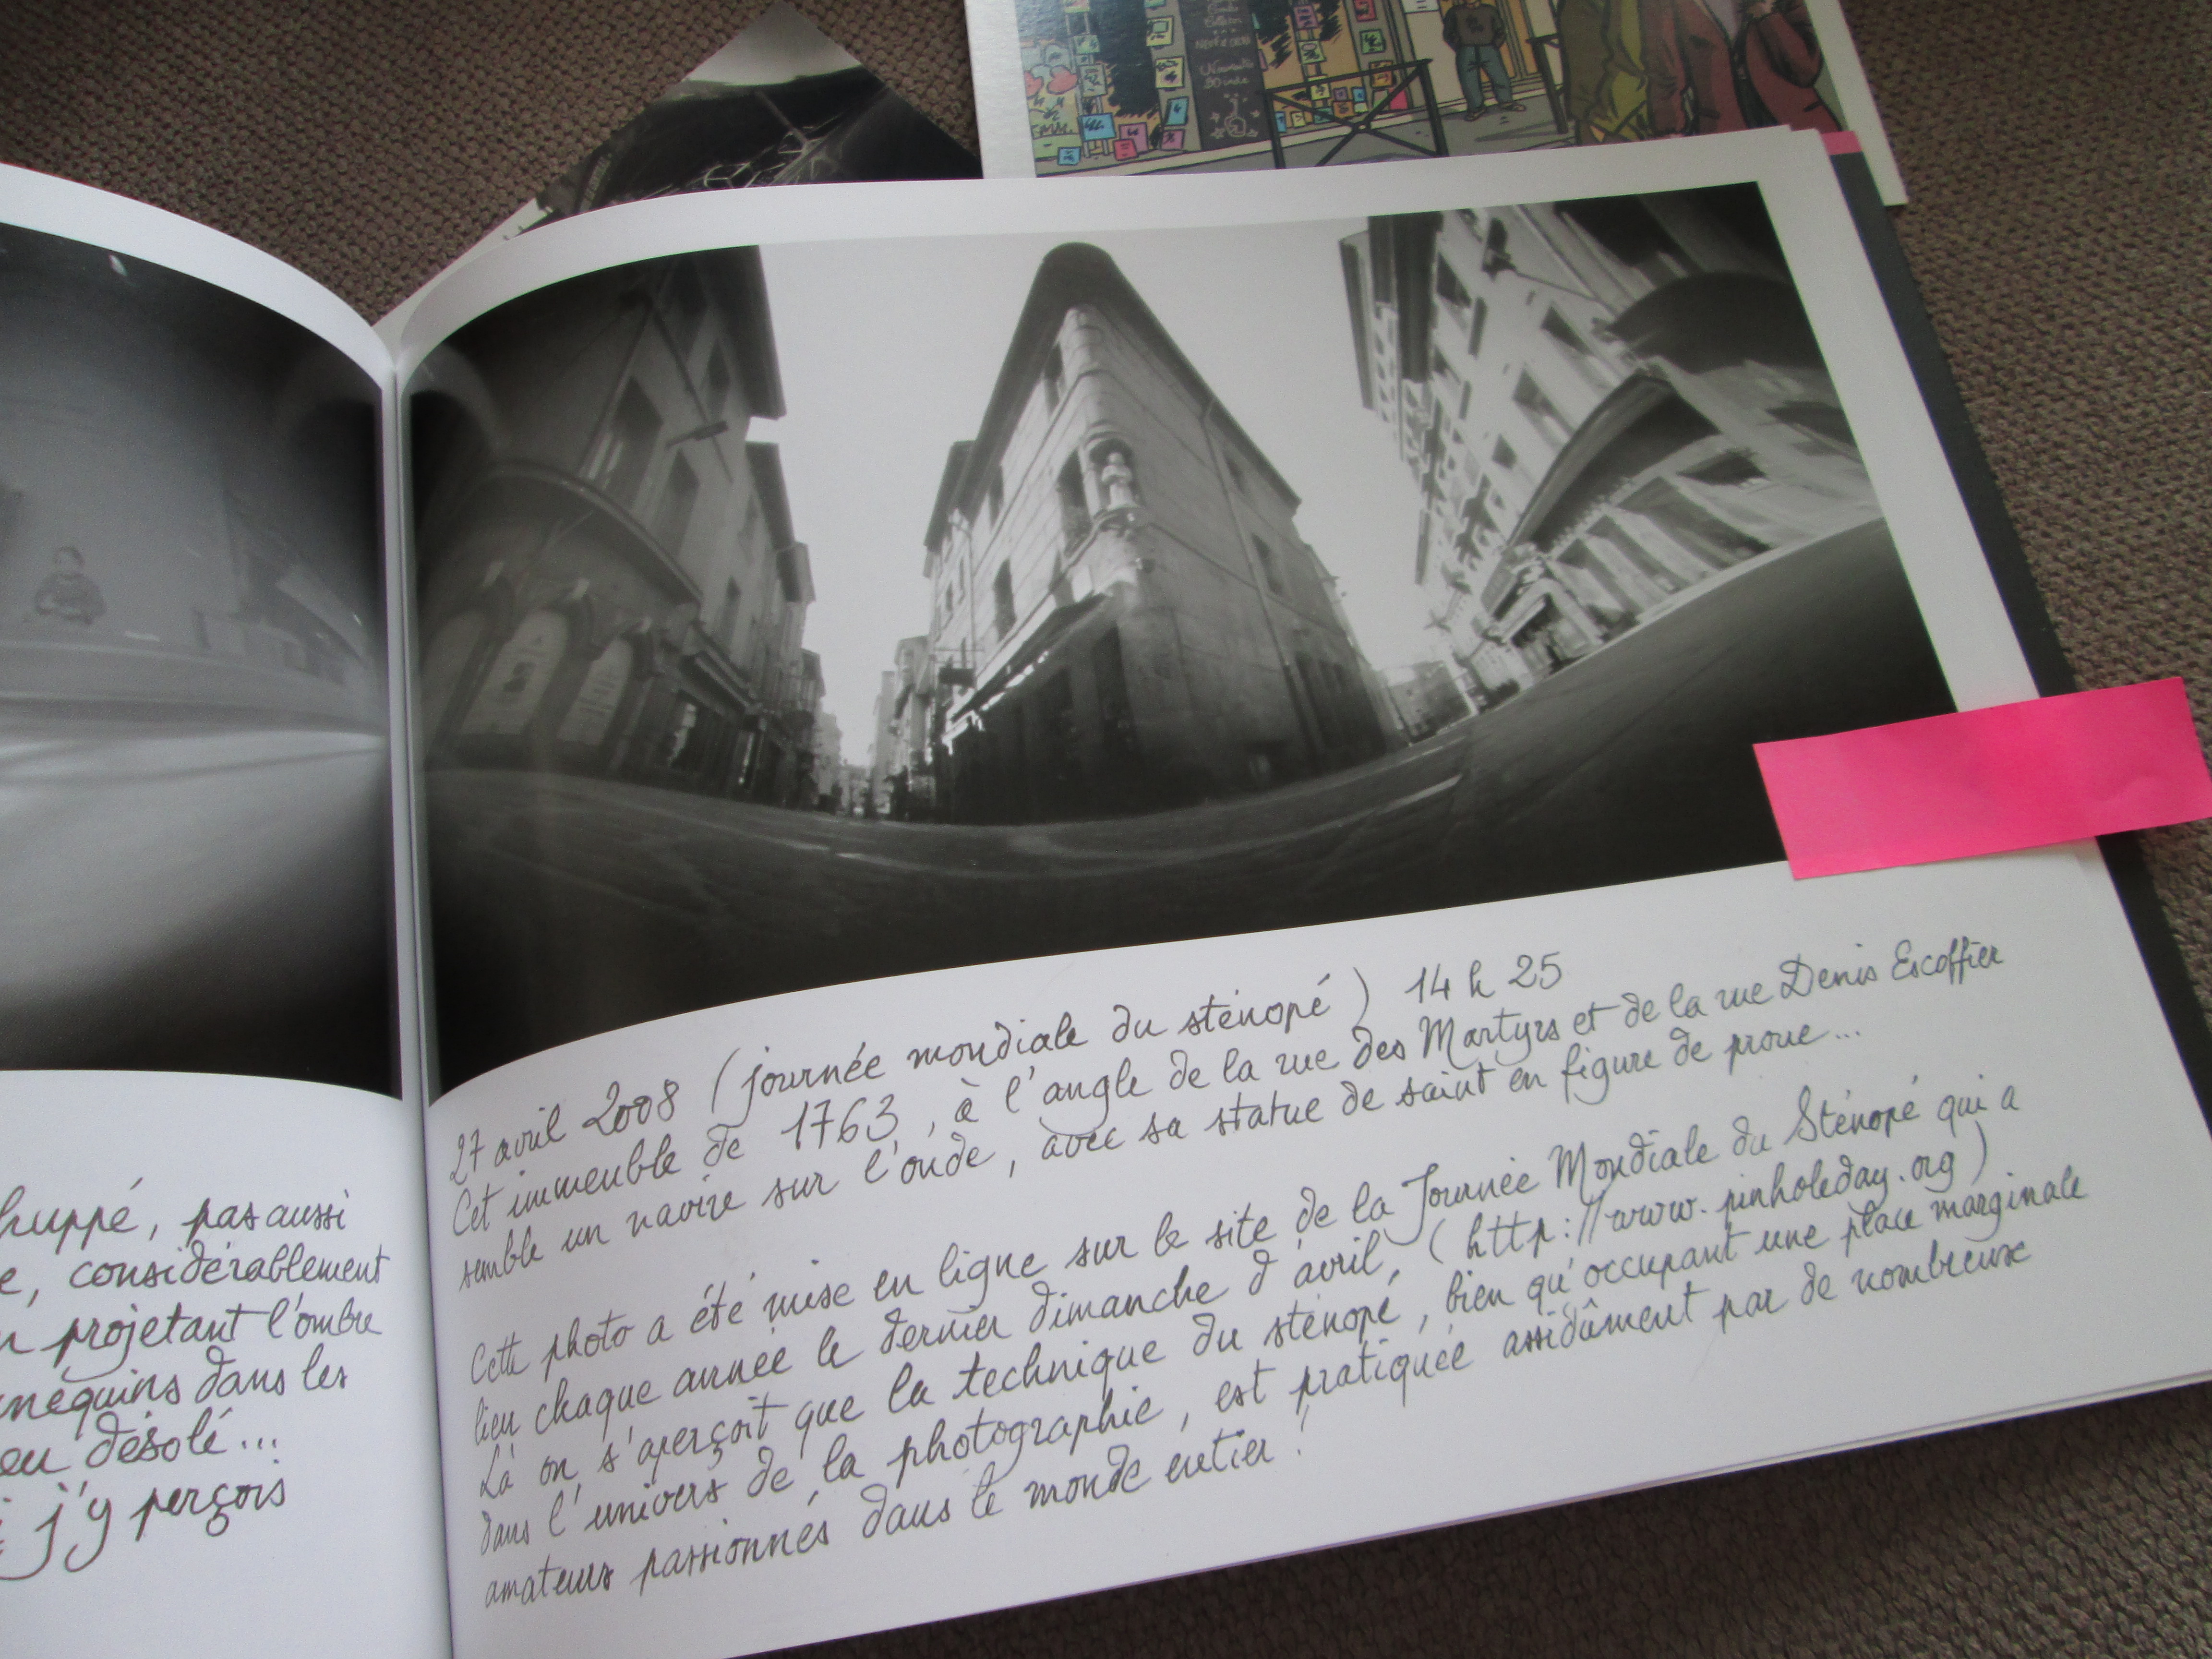 huppé, pas aussi
e, considérablement
n projetant l'ombre
nnequins dans les
eu désolé...
j'y perçois
27 avril 2008 (journée mondiale du sténopé) 14 h 25
Cet immeuble de 1763, à l'angle de la rue des Martyrs et de la rue Denis Escoffier
semble un navire sur l'onde, avec sa statue de saint en figure de proue...
Cette photo a été mise en ligne sur le site de la Journée Mondiale du Sténopé qui a
lieu chaque année le dernier dimanche d'avril, (http://www.pinholeday.org)
Là on s'aperçoit que la technique du sténopé, bien qu'occupant une place marginale
dans l'univers de la photographie, est pratiquée assidûment par de nombreux
amateurs passionnés dans le monde entier !